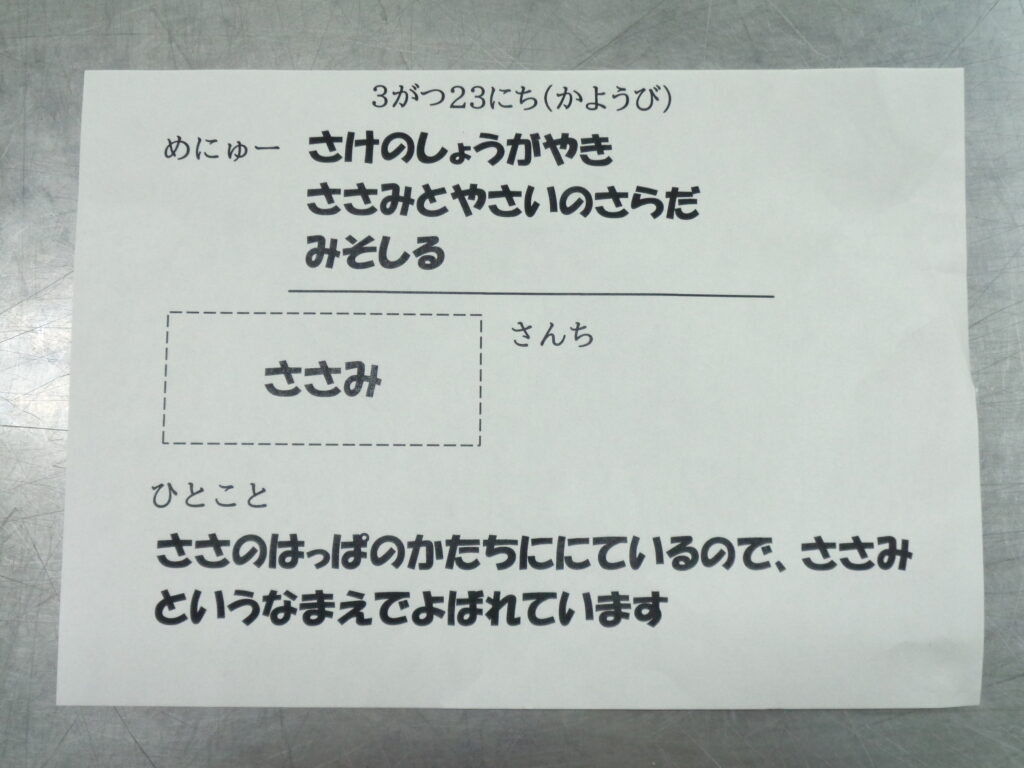 3がつ23にち(かようび)
めにゅー さけのしょうがやき
ささみとやさいのさらだ
みそしる
ささみ さんち
ひとこと
ささのはっぱのかたちににているので、ささみ
というなまえでよばれています